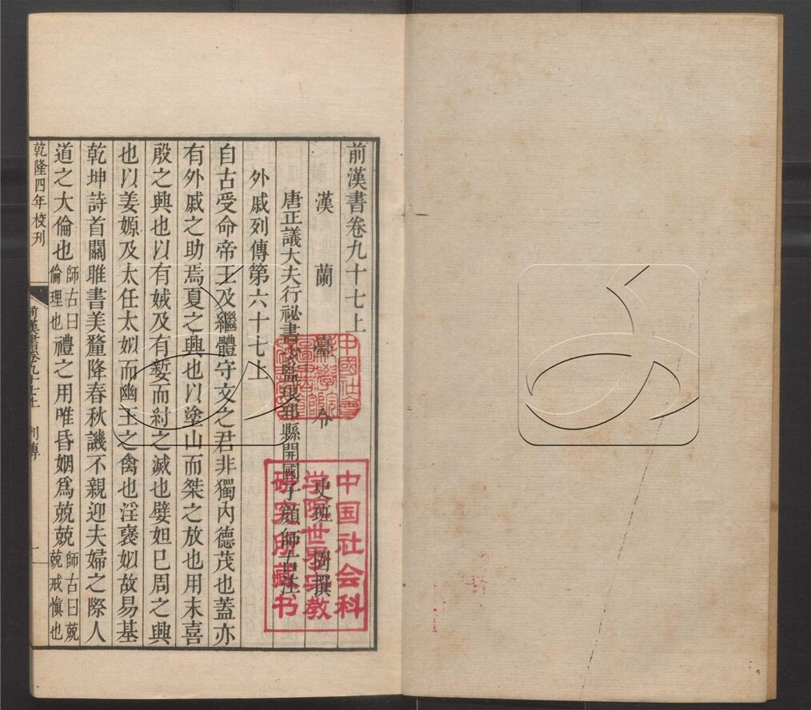 前漢書卷九十七上
漢蘭臺令史班固撰
唐正議大夫行祕書少監琅邪縣開國子顏師古注
外戚列傳第六十七上
自古受命帝王及繼體守文之君非獨內德茂也蓋亦
有外戚之助焉夏之興也以塗山而桀之放也用末喜
殷之興也以有娀及有㜪而紂之滅也嬖妲己周之興
也以姜嫄及太任太姒而幽王之禽也淫襃姒故易基
乾坤詩首關雎書美釐降春秋譏不親迎夫婦之際人
道之大倫也師古曰倫理也禮之用唯昏姻爲兢兢師古曰兢兢戒愼也
乾隆四年校刊
前漢書卷九十七上 列傳 一
中國社會
科學院
中国社会科
学院世界宗教
研究所藏书